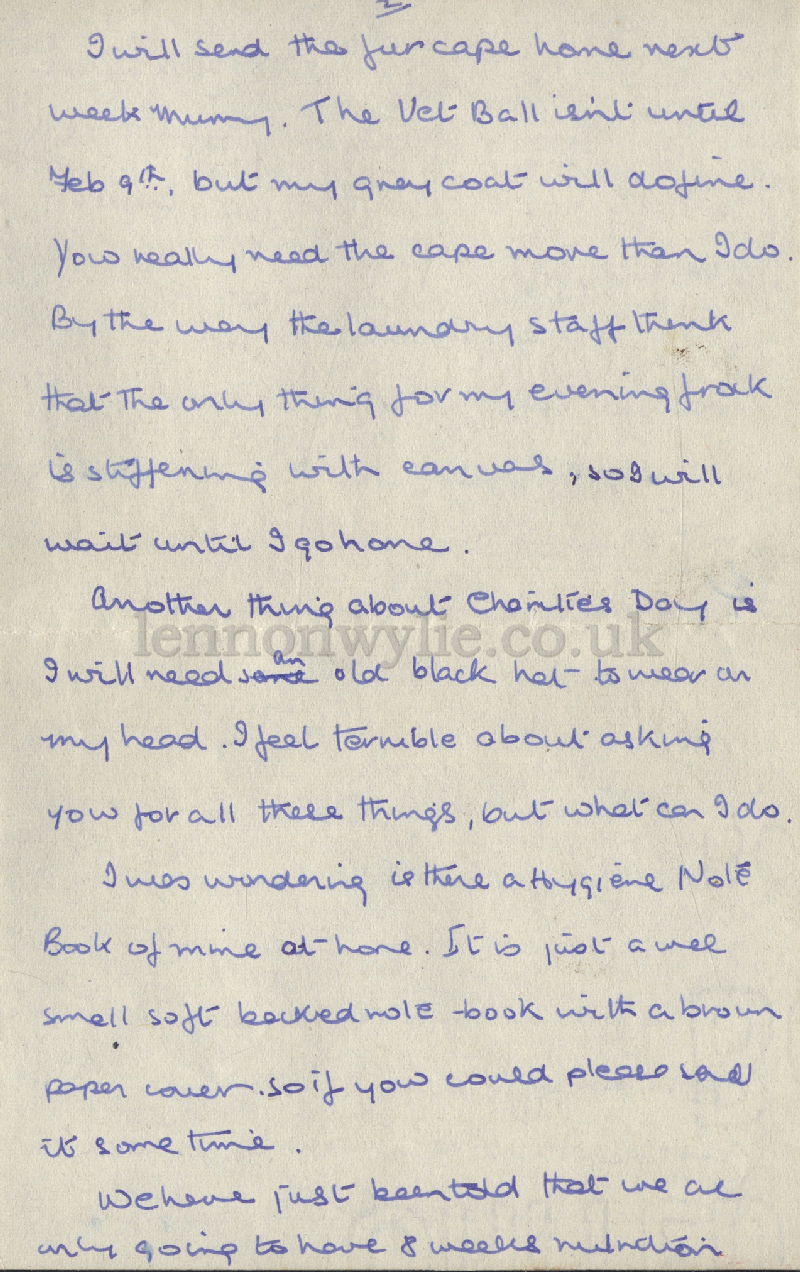 2
I will send the fur cape home next
week Mummy. The Vet Ball isn't until
Feb 9th, but my grey coat will do fine.
You really need the cape more than I do.
By the way the laundry staff think
that the only thing for my evening frock
is stiffening with canvas, so I will
wait until I go home.
Another thing about Charities Day is
lennonwylie.co.uk
I will need some an old black hat to wear on
my head. I feel terrible about asking
you for all these things, but what can I do.
I was wondering is there a Hygiene Note
Book of mine at home. It is just a wee
small soft backed note-book with a brown
paper cover. So if you could please send
it some time.
We have just been told that we are
only going to have 8 weeks nutrition